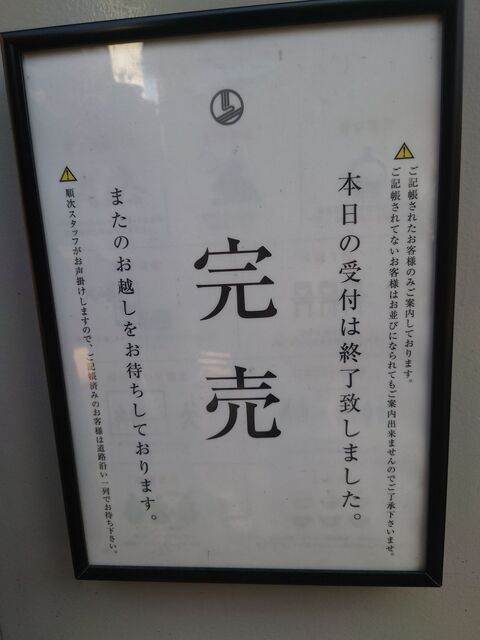 ⚠ ご記帳されたお客様のみご案内しております。
ご記帳されてないお客様はお並びになられてもご案内出来ませんのでご了承下さいませ。
本日の受付は終了致しました。
完売
またのお越しをお待ちしております。
⚠ 順次スタッフがお声掛けしますので、ご記帳済みのお客様は道路沿い一列でお待ち下さい。